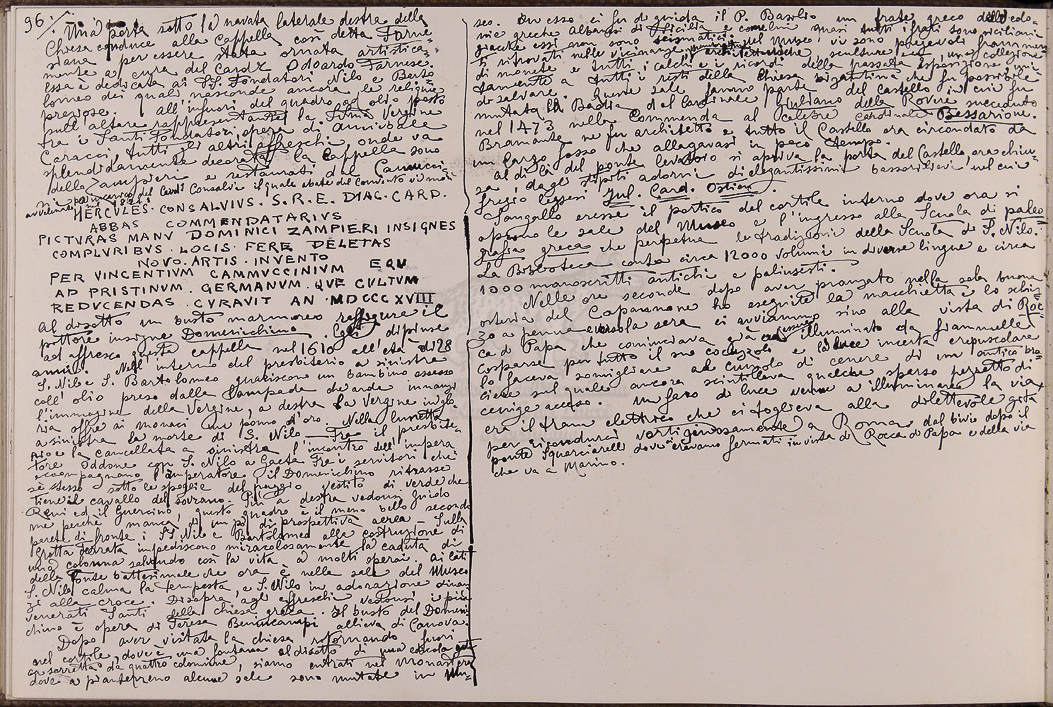 96/. Una porta sotto la navata laterale destra della
Chiesa conduce alla Cappella così detta Farne-
siana per essere stata ornata artistica-
mente a cura del Card. Odoardo Farnese.
Essa è dedicata ai SS. Fondatori Nilo e Barto
lomeo dei quali nasconde ancora le reliquie
preziose. all'infuori del quadro ad olio posto
sull'altare rappresentante la Vergine
fra i Santi Fondatori, opera di Annibale
Caracci, tutti gli altri affreschi, onde va
splendidamente decorata la Cappella sono
dello Zampieri e restaurati dal Camucci
per incarico del Card. Consalvi il quale abate del convento
HERCULES. CONSALVIUS. S.R.E. DIAC. CARD.
ABBAS COMMENDATARIVS
PICTVRAS MANV DOMINICI ZAMPIERI INSIGNES
COMPLVRIBVS. LOCIS. FERE DELETAS
NOVO. ARTIS. INVENTO
PER VINCENTIVM CAMMVCCINIVM EQV
AD PRISTINVM. GERMANVM. QVE CVLTVM
REDVCENDAS. CVRAVIT AN. MDCCCXVIII
Al disotto un busto marmoreo raffigura il
pittore insigne Domenichino. Egli dipinse
ad affresco questa cappella nel 1610 all'età di 28
anni. Nell'interno del presbiterio a sinistra
S. Nilo e S. Bartolomeo guariscono un bambino ossesso
coll'olio preso dalla lampada che arde innanzi
l'immagine della Vergine, a destra la Vergine in glo
ria offre ai monaci un pomo d'oro. Nella lunetta
a sinistra la morte di S. Nilo. Fra il presbite
rio e la cancellata a sinistra l'incontro dell'impera
tore Oddone con S. Nilo a Gaeta. Fra i servitori che
accompagnano l'imperatore il Domenichino ritrasse
sè stesso sotto le spoglie del paggio vestito di verde che
tiene il cavallo del sovrano. Più a destra vedonsi Guido
Reni ed il Guercino, questo quadro è il meno bello secondo
me perchè manca di un pò di prospettiva aerea. Sulla
parete di fronte i SS. Nilo e Bartolomeo alla costruzione di
Grotta Ferrata impediscono miracolosamente la caduta di
una colonna salvando così la vita a molti operai. Ai lati
della fonte battesimale che ora è nelle sale del Museo
S. Nilo calma la tempesta, e S. Nilo in adorazione dinan
zi alla croce. Disopra agli affreschi vedonsi i più
venerati Santi della chiesa greca. Il busto del Domeni
chino è opera di Teresa Benincampi allieva di Canova.
Dopo aver visitata la chiesa ritornando fuori
nel cortile, dove è una fontana al disotto di una edicola
sorretta da quattro colonnine, siamo entrati nel Monastero
dove a pianterreno alcune sale sono mutate in Mu-
seo. In esso ci fu di guida il P. Basilio un frate greco delle colo
nie greche albanesi di Sicilia come tutti i frati sono siciliani
greche essi non sono scismatici. Nel Museo, vi sono pregevoli frammen
ti ritrovati nelle vicinanze architettoniche sculture
di monete e tutti i calchi e i ricordi della passata Esposizione, uni
tamente a tutti i resti della Chiesa bizantina che fu possibile
di salvare. Queste sale fanno parte del castello in cui fu
mutata la Badia dal Cardinale Giuliano della Rovere succeduto
nel 1473 nella Commenda al celebre cardinale Bessarione.
Bramante ne fu architetto e tutto il Castello era circondato da
un largo fosso che allagavasi in poco tempo.
Al di là del ponte levatoio si apriva la porta del Castello, ora chiu-
sa, dagli stipiti adorni di elegantissimi bassorilievi nel cui
fregio leggesi Jul. Card. Ostien
Sangallo eresse il portico del cortile interno dove ora si
aprono le sale del Museo e l'ingresso alla Scuola di paleo
grafia greca che perpetua le tradizioni della Scuola di S. Nilo.
La Biblioteca conta circa 12000 volumi in diverse lingue e circa
1000 manoscritti antichi e palinsesti.
Nelle ore seconde dopo aver pranzato nella sala buona
osteria del Capannone ho eseguito la macchietta e lo schiz
zo a penna e a sera ci avviammo sino alla vista di Roc
ca di Papa che cominciava già ad essere illuminata da fiammelle
cosparse per tutto il suo cocuzzolo e la luce incerta crepuscolare
lo faceva somigliare ad un cuzzolo di cenere di un antico bra
ciere sul quale ancora scintillava qualche sperso pezzetto di
cenige acceso. Un faro di luce venne a illuminare la via
era il tram elettrico che ci toglieva alla dilettevole gita
per ricondurci vertiginosamente a Roma dal bivio dopo il
ponte Squarciarelli dove c'eravamo fermati in vista di Rocca di Papa e della via
che va a Marino.